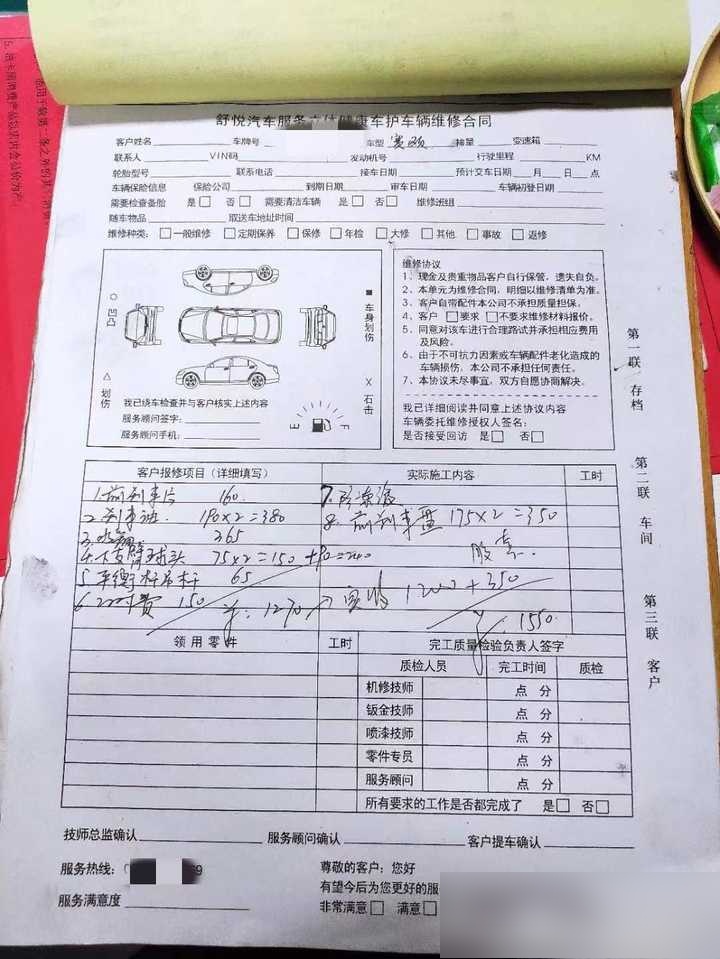 5、油卡周消费产品以实内含品价为准。
舒悦汽车服务 健康车护车辆维修合同
客户姓名 车牌号 车型 赛欧 排量 变速箱
联系人 VIN码 发动机号 行驶里程 KM
轮胎型号 联系电话 接车日期 预计交车日期 月 日 点
车辆保险信息 保险公司 到期日期 审车日期 车辆初登日期
需要检查备胎 是□ 否□ 需要清洁车辆 是□ 否□ 维修班组
随车物品 取送车地址时间
维修种类：□一般维修 □定期保养 □保修 □年检 □大修 □其他 □事故 □返修
凹凸
△ 划伤
■ 车身划伤
X 石击
我已绕车检查并与客户核实上述内容
服务顾问签字：
服务顾问手机：
E F
维修协议
1、现金及贵重物品客户自行保管，遗失自负。
2、本单元为维修合同，明细以维修清单为准。
3、客户自带配件本公司不承担质量担保。
4、客户 □要求 □不要求维修材料报价。
5、同意对该车进行合理路试并承担相应费用
及风险。
6、由于不可抗力因素或车辆配件老化造成的
车辆损伤，本公司不承担任何责任。
7、本协议未尽事宜，双方自愿协商解决。
我已详细阅读并同意上述协议内容
车辆委托维修授权人签名：
是否接受回访 是□ 否□
第一联 存档
第二联 车间
第三联 客户
客户报修项目（详细填写） 实际施工内容 工时
1.前刹车片 160
7.防冻液
2.刹车油 190×2=380
8.前刹车盘 175×2=350
3. 365
4.下支臂球头 75×2=150
5.平衡杆吊杆 65
6.工时费 150
1270
实收 1200+350
1550
领用零件 工时 完工质量检验负责人签字
质检人员 完工时间 质检
机修技师 点 分
钣金技师 点 分
喷漆技师 点 分
零件专员 点 分
服务顾问 点 分
所有要求的工作是否都完成了 是□ 否□
技师总监确认 服务顾问确认 客户提车确认
服务热线： 9
尊敬的客户：您好
有望今后为您更好的服
服务满意度
非常满意□ 满意□